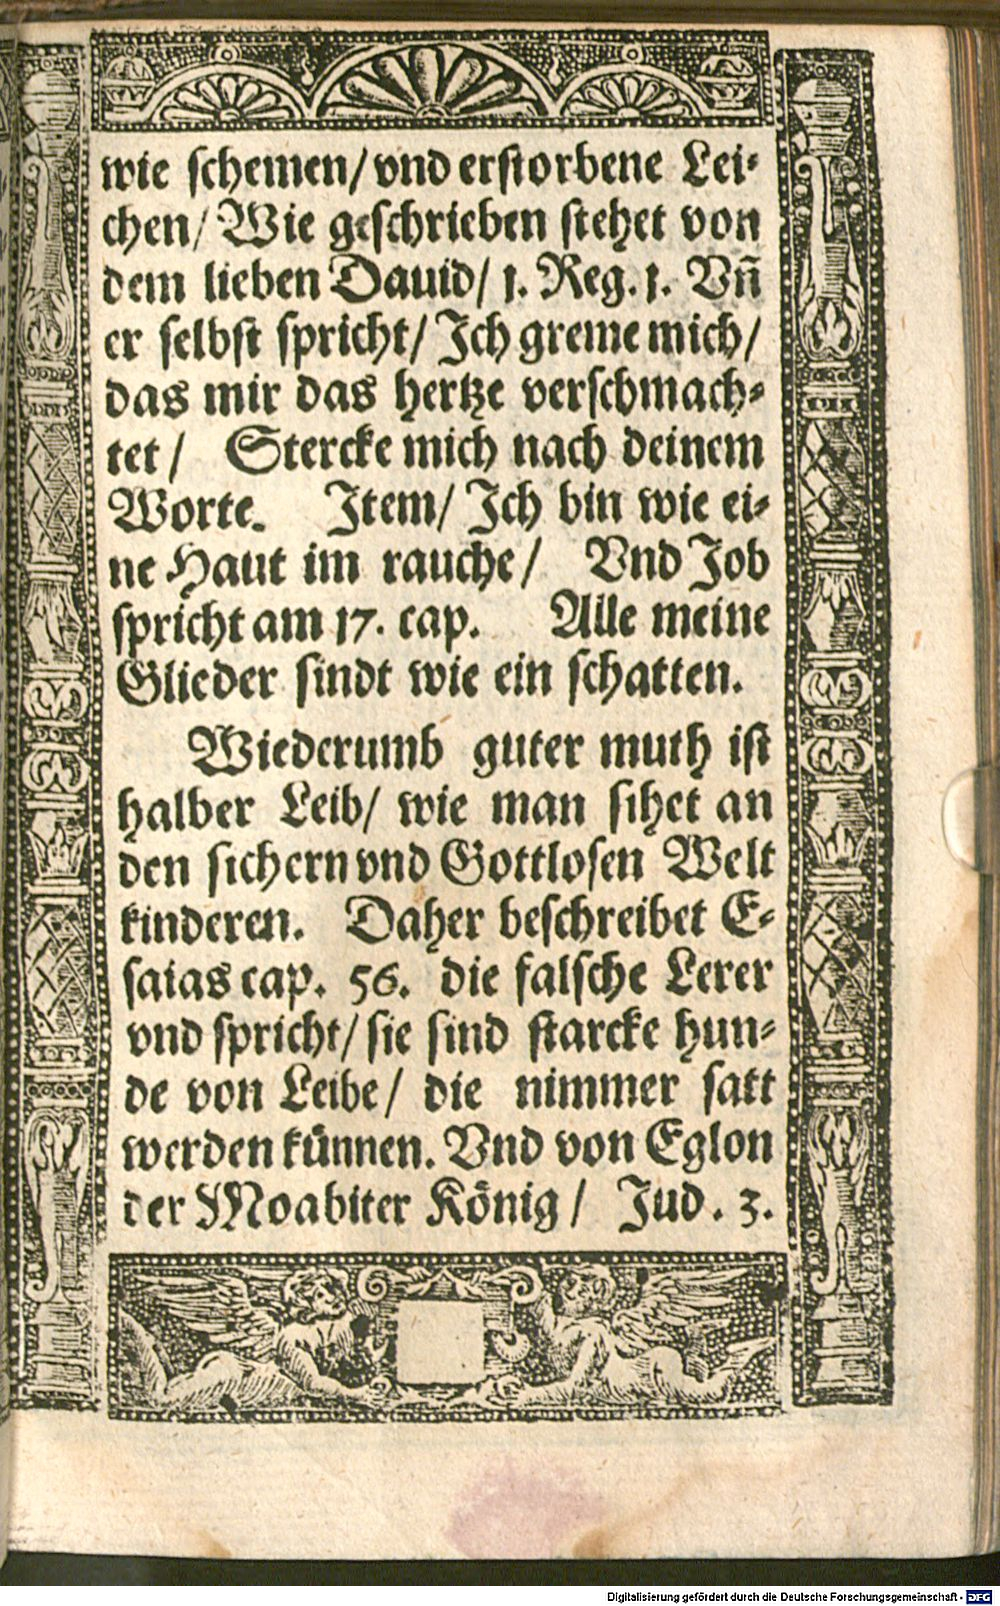 wie schemen/ vnd erstorbene Lei-
chen/ Wie geschrieben stehet von
dem lieben Dauid/ 1. Reg. 1. Vñ
er selbst spricht/ Ich greme mich/
das mir das hertze verschmach-
tet/ Stercke mich nach deinem
Worte. Item/ Ich bin wie ei-
ne Haut im rauche/ Vnd Job
spricht am 17. cap. Alle meine
Glieder sindt wie ein schatten.
Wiederumb guter muth ist
halber Leib/ wie man sihet an
den sichern vnd Gottlosen Welt
kinderen. Daher beschreibet E-
saias cap. 56. die falsche Lerer
vnd spricht/ sie sind starcke hun-
de von Leibe/ die nimmer satt
werden künnen. Vnd von Eglon
der Moabiter König/ Jud. 3.
Digitalisierung gefördert durch die Deutsche Forschungsgemeinschaft - DFG